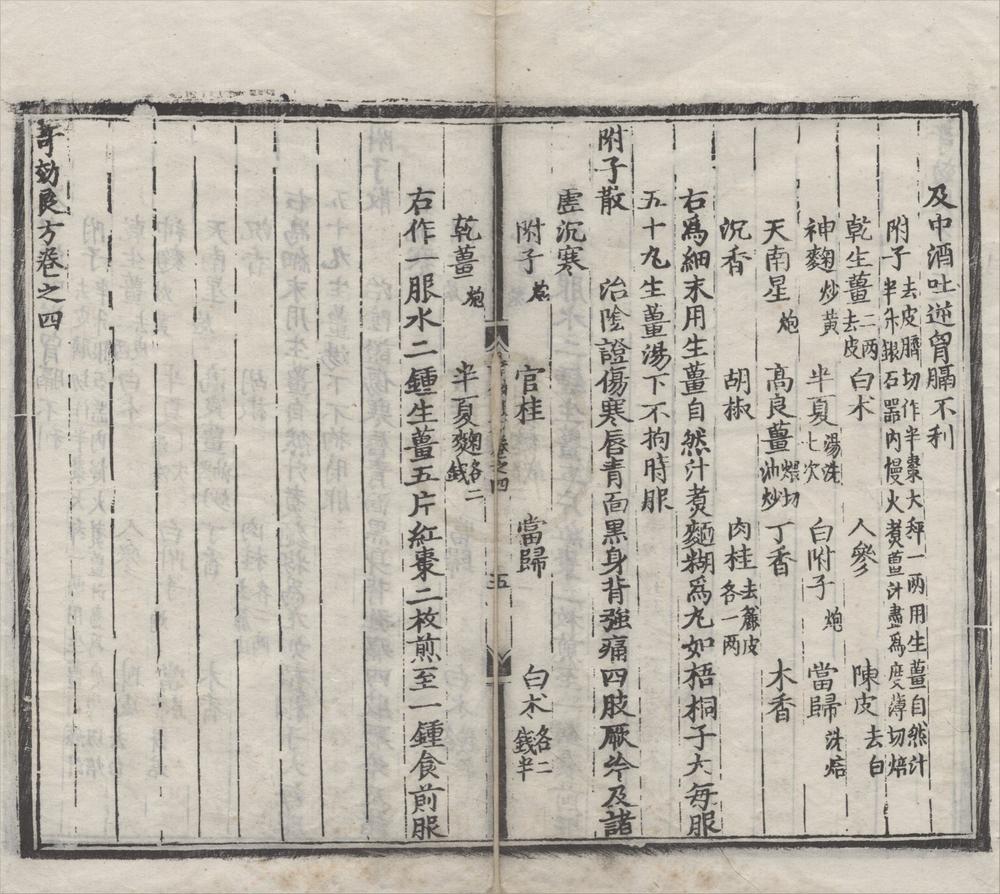 及中酒吐逆胷膈不利
附子去皮臍切作半棗大秤一兩用生薑自然汁半升銀石器內慢火煑薑汁盡爲度薄切焙
乾生薑二兩去皮 白朮 人參 陳皮去白
神麴炒黃 半夏湯洗七次 白附子炮 當歸洗焙
天南星炮 高良薑煨切油炒 丁香 木香
沉香 胡椒 肉桂去麄皮各一兩
右爲細末用生薑自然汁煑麵糊爲丸如梧桐子大每服
五十丸生薑湯下不拘時服
附子散 治陰證傷寒唇青面黑身背強痛四肢厥冷及諸
虛沉寒
附子炮 官桂 當歸 白朮各二錢半
卷之四 五
乾薑炮 半夏麴各二錢
右作一服水二鍾生薑五片紅棗二枚煎至一鍾食前服
奇効良方卷之四